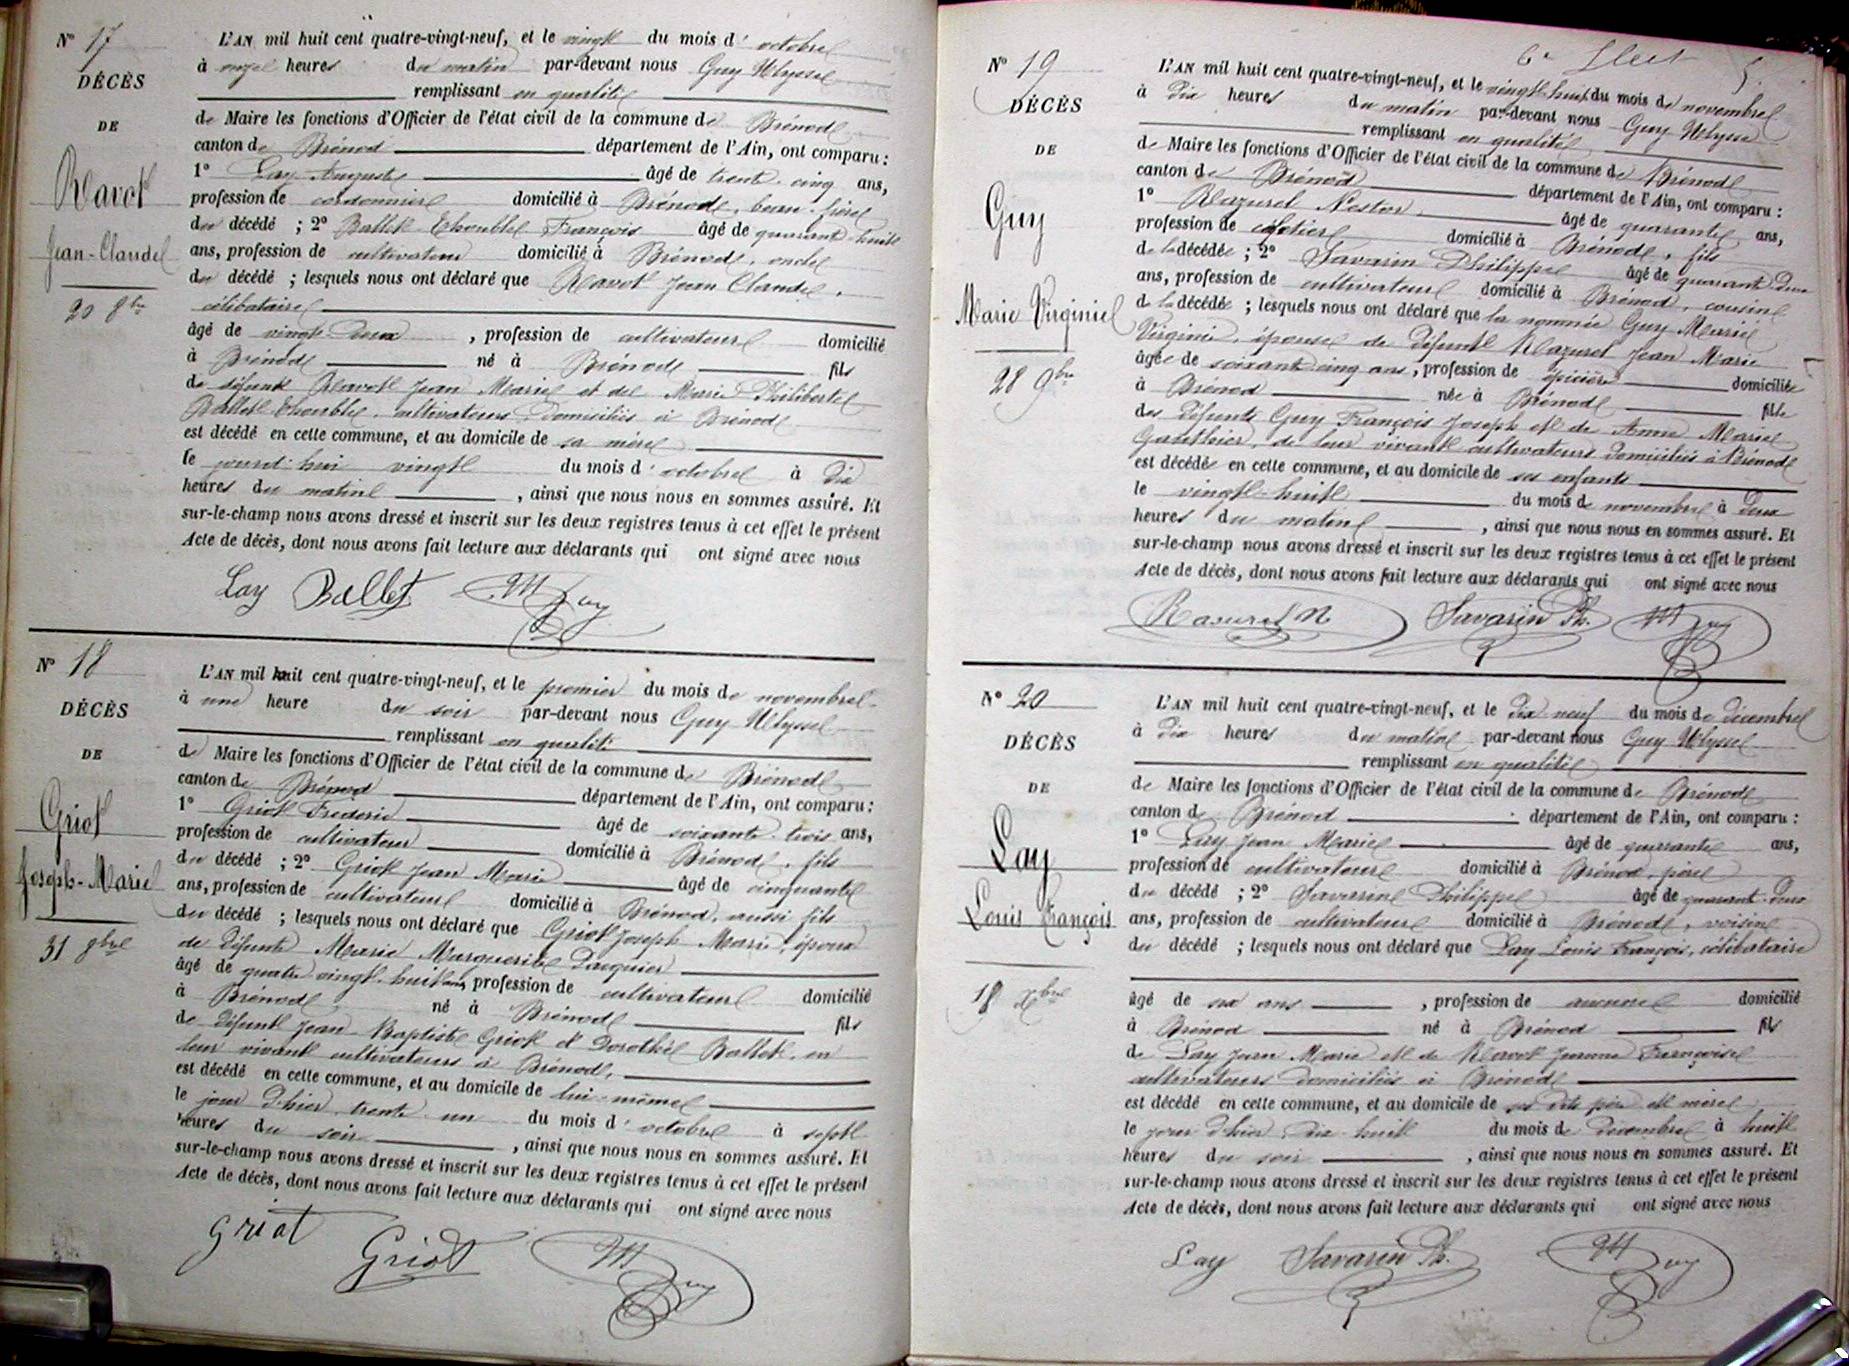 N° 17
DÉCÈS
DE
Ravot
Jean-Claude
20 8bre
L'AN mil huit cent quatre-vingt-neuf, et le vingt du mois d'octobre
à onze heures du matin par-devant nous Guy Ulysse
remplissant en qualité
de Maire les fonctions d'Officier de l'état civil de la commune de Brénod
canton de Brénod département de l'Ain, ont comparu :
1° Lay Auguste âgé de trente-cinq ans,
profession de cordonnier domicilié à Brénod, beau-frère
du décédé ; 2° Ballet Thouble François âgé de quarante-huit
ans, profession de cultivateur domicilié à Brénod, oncle
du décédé ; lesquels nous ont déclaré que Ravot Jean Claude,
célibataire
âgé de vingt-deux , profession de cultivateur domicilié
à Brénod né à Brénod fils
de défunt Ravot Jean Marie et de Marie Philiberte
Ballet Thouble, cultivateurs domiciliés à Brénod
est décédé en cette commune, et au domicile de sa mère
le jourd'hui vingt du mois d'octobre à dix
heures du matin , ainsi que nous nous en sommes assuré. Et
sur-le-champ nous avons dressé et inscrit sur les deux registres tenus à cet effet le présent
Acte de décès, dont nous avons fait lecture aux déclarants qui ont signé avec nous
Lay Ballet Guy
N° 18
DÉCÈS
DE
Griot
Joseph-Marie
31 8bre
L'AN mil huit cent quatre-vingt-neuf, et le premier du mois de novembre
à une heure du soir par-devant nous Guy Ulysse
remplissant en qualité
de Maire les fonctions d'Officier de l'état civil de la commune de Brénod
canton de Brénod département de l'Ain, ont comparu :
1° Griot Frédéric âgé de soixante-trois ans,
profession de cultivateur domicilié à Brénod, fils
du décédé ; 2° Griot Jean Marie âgé de cinquante
ans, profession de cultivateur domicilié à Brénod, aussi fils
du décédé ; lesquels nous ont déclaré que Griot Joseph Marie, époux
de défunte Marie Marguerite
âgé de quatre vingt-huit ans, profession de cultivateur domicilié
à Brénod né à Brénod fils
de défunt Jean Baptiste Griot et Dorothée Ballet en
leur vivant cultivateurs à Brénod,
est décédé en cette commune, et au domicile de lui-même
le jour d'hier trente-un du mois d'octobre à sept
heures du soir , ainsi que nous nous en sommes assuré. Et
sur-le-champ nous avons dressé et inscrit sur les deux registres tenus à cet effet le présent
Acte de décès, dont nous avons fait lecture aux déclarants qui ont signé avec nous
Griot Griot Guy
N° 19
DÉCÈS
DE
Guy
Marie Virginie
28 9bre
L'AN mil huit cent quatre-vingt-neuf, et le vingt-huit du mois de novembre
à dix heures du matin par-devant nous Guy Ulysse
remplissant en qualité
de Maire les fonctions d'Officier de l'état civil de la commune de Brénod
canton de Brénod département de l'Ain, ont comparu :
1° Razurel Nestor âgé de quarante ans,
profession de domicilié à Brénod, fils
de la décédée ; 2° Savarin Philippe âgé de quarante-deux
ans, profession de cultivateur domicilié à Brénod, cousin
de la décédée ; lesquels nous ont déclaré que la nommée Guy Marie
Virginie, épouse de défunt Razurel Jean Marie
âgée de soixante cinq ans, profession de épicière domiciliée
à Brénod née à Brénod fille
des défunts Guy François Joseph et de Anne Marie
Gauthier, de leur vivant cultivateurs domiciliés à Brénod
est décédée en cette commune, et au domicile de ses enfants
le vingt-huit du mois de novembre à deux
heures du matin , ainsi que nous nous en sommes assuré. Et
sur-le-champ nous avons dressé et inscrit sur les deux registres tenus à cet effet le présent
Acte de décès, dont nous avons fait lecture aux déclarants qui ont signé avec nous
Rasurel N Savarin Ph. Guy
N° 20
DÉCÈS
DE
Lay
Louis François
18 Xbre
L'AN mil huit cent quatre-vingt-neuf, et le dix neuf du mois de décembre
à dix heures du matin par-devant nous Guy Ulysse
remplissant en qualité
de Maire les fonctions d'Officier de l'état civil de la commune de Brénod
canton de Brénod département de l'Ain, ont comparu :
1° Lay Jean Marie âgé de quarante ans,
profession de cultivateur domicilié à Brénod, père
du décédé ; 2° Savarin Philippe âgé de quarante-deux
ans, profession de cultivateur domicilié à Brénod, voisin
du décédé ; lesquels nous ont déclaré que Lay Louis François, célibataire
âgé de six ans , profession de aucune domicilié
à Brénod né à Brénod fils
de Lay Jean Marie et de Ravot Jeanne Françoise
cultivateurs domiciliés à Brénod
est décédé en cette commune, et au domicile de ses dits père et mère
le jour d'hier dix-huit du mois de décembre à huit
heures du soir , ainsi que nous nous en sommes assuré. Et
sur-le-champ nous avons dressé et inscrit sur les deux registres tenus à cet effet le présent
Acte de décès, dont nous avons fait lecture aux déclarants qui ont signé avec nous
Lay Savarin Ph. Guy